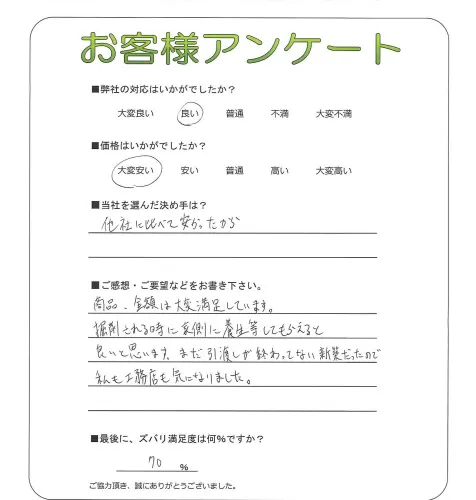 お客様アンケート
■弊社の対応はいかがでしたか？
大変良い 良い 普通 不満 大変不満
■価格はいかがでしたか？
大変安い 安い 普通 高い 大変高い
■当社を選んだ決め手は？
他社に比べて安かったから
■ご感想・ご要望などをお書き下さい。
商品、金額は大変満足しています。
掘削される時に家側に養生等してもらえると
良いと思います、まだ引渡しが終わってない新築だったので
私も工務店も気になりました。
■最後に、ズバリ満足度は何％ですか？
70 %
ご協力頂き、誠にありがとうございました。